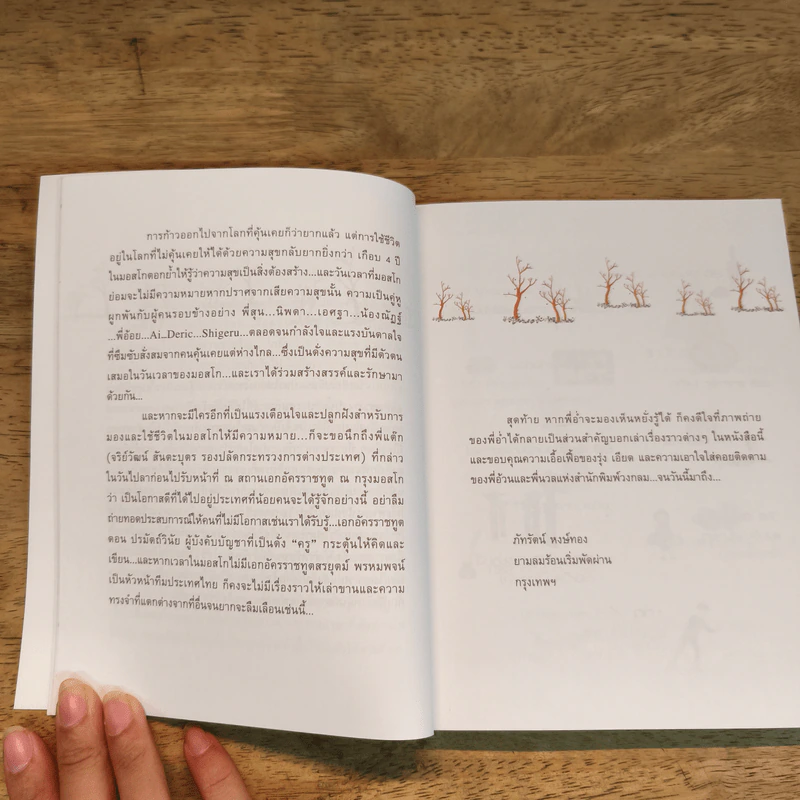 การก้าวออกไปจากโลกที่คุ้นเคยก็ว่ายากแล้ว แต่การใช้ชีวิต
อยู่ในโลกที่ไม่คุ้นเคยให้ได้ด้วยความสุขกลับยากยิ่งกว่า เกือบ 4 ปี
ในมอสโกตอกย้ำให้รู้ว่าความสุขเป็นสิ่งต้องสร้าง...และวันเวลาที่มอสโก
ย่อมจะไม่มีความหมายหากปราศจากเสียความสุขนั้น ความเป็นคู่หู
ผูกพันกับผู้คนรอบข้างอย่าง พี่สุน...นิพดา...เอศฐา...น้องณัฏฐ์
...พี่อ้อย...Ai..Deric...Shigeru...ตลอดจนกำลังใจและแรงบันดาลใจ
ที่ซึมซับสั่งสมจากคนคุ้นเคยแต่ห่างไกล...ซึ่งเป็นดั่งความสุขที่มีตัวตน
เสมอในวันเวลาของมอสโก...และเราได้ร่วมสร้างสรรค์และรักษามา
ด้วยกัน...
และหากจะมีใครอีกที่เป็นแรงเตือนใจและปลูกฝังสำหรับการ
มองและใช้ชีวิตในมอสโกให้มีความหมาย...ก็จะขอนึกถึงพี่แต๊ก
(จริย์วัฒน์ สันตะบุตร รองปลัดกระทรวงการต่างประเทศ) ที่กล่าว
ในวันไปลาก่อนไปรับหน้าที่ ณ สถานเอกอัครราชทูต ณ กรุงมอสโก
ว่า เป็นโอกาสดีที่ได้ไปอยู่ประเทศที่น้อยคนจะได้รู้จักอย่างนี้ อย่าลืม
ถ่ายทอดประสบการณ์ให้คนที่ไม่มีโอกาสเช่นเราได้รับรู้...เอกอัครราชทูต
ดอน ปรมัตถ์วินัย ผู้บังคับบัญชาที่เป็นดั่ง “ครู” กระตุ้นให้คิดและ
เขียน...และหากเวลาในมอสโกไม่มีเอกอัครราชทูตสรยุตม์ พรหมพจน์
เป็นหัวหน้าทีมประเทศไทย ก็คงจะไม่มีเรื่องราวให้เล่าขานและความ
ทรงจำที่แตกต่างจากที่อื่นจนยากจะลืมเลือนเช่นนี้...
สุดท้าย หากพี่อ่ำจะมองเห็นหยั่งรู้ได้ ก็คงดีใจที่ภาพถ่าย
ของพี่อ่ำได้กลายเป็นส่วนสำคัญบอกเล่าเรื่องราวต่างๆ ในหนังสือนี้
และขอบคุณความเอื้อเฟื้อของรุ่ง เอียด และความเอาใจใส่คอยติดตาม
ของพี่อ้วนและพี่นวลแห่งสำนักพิมพ์วงกลม...จนวันนี้มาถึง...
ภัทรัตน์ หงษ์ทอง
ยามลมร้อนเริ่มพัดผ่าน
กรุงเทพฯ